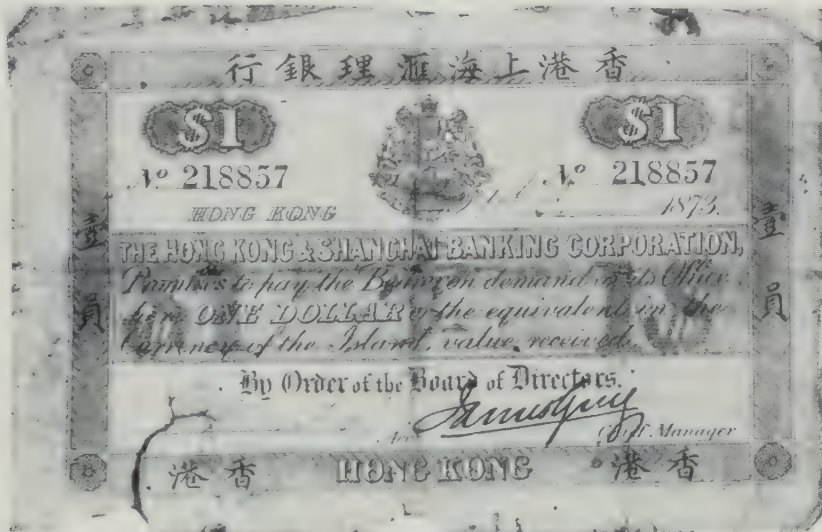 行銀理滙海上港香
$1 $1
Nº 218857 Nº 218857
HONG KONG 1873.
THE HONG KONG & SHANGHAI BANKING CORPORATION,
Promises to pay the Bearer on demand in its Office
here ONE DOLLAR or the equivalent in the
Currency of the Island, value received.
By Order of the Board of Directors.
Chief Manager
港香 HONG KONG 港香
壹員
壹員